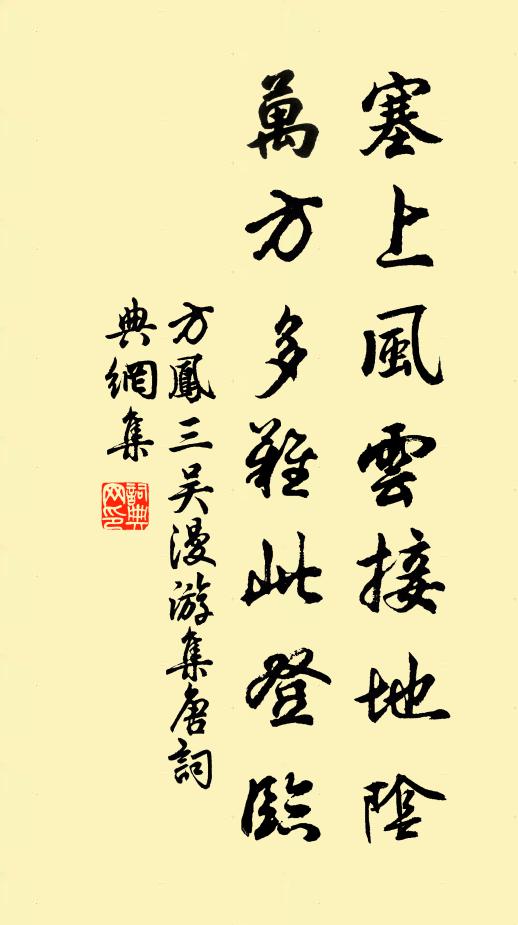 塞上風雲接地陰
萬方多難此登臨
方鳳三吴漫游集唐詞
典網集
詞典
网印